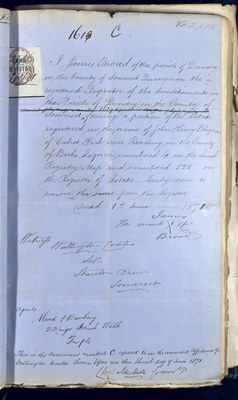 1619 C
I James Brood of the parish of Dundry
in the County of Somerset Quarryman the
registered Proprietor of the hereditaments in
the Parish of Dundry in the County of
Somerset forming a portion of the Estate
registered in the name of John Henry Blagrave
of Calcot Park near Reading in the County
of Berks Esquire numbered on the Land
Registry Map and numbered 525 on
the Register of Estates hereby desire to
remove the same from the Register
Dated 1st June 1871
James
The mark of
Brood
Witness
Wallington Coates
Solr
Stanton Drew
Somerset
Agents
Mead & Daubeny
2 Kings Bench Walk
Temple
This is the document marked C referred to in the annexed Affidavit of
Wallington Coates Sworn before me this third day of June 1871